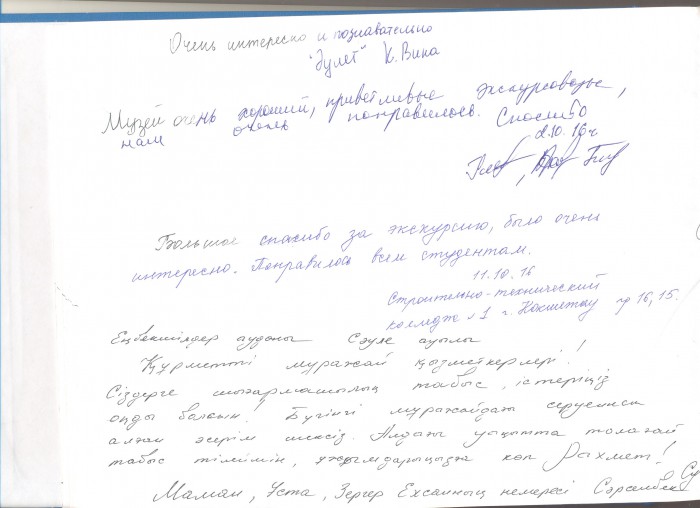 Очень интересно и познавательно
"Дулет" К. Вина
Музей очень хороший, приветливые экскурсоводы,
нам очень понравилось. Спасибо
2.10.16 г
Большое спасибо за экскурсию, было очень
интересно. Понравилось всем студентам.
11.10.16
Строительно-технический
колледж №1 г. Кокшетау гр 16, 15.
Еңбекшілдер ауданы Сәуле ауылы
Құрметті мұражай қызметкерлері!
Сіздерге шығармашылық табыс, істеріңіз
оңды болсын! Бүгінгі мұражайдағы серуеннен
алған әсерім шексіз. Алдағы уақытта толағай
табыс тілеймін, ұжымдарыңызға көп Рахмет!
Маман, Ұста, Зергер Ехсанның немересі Сәрсенбек